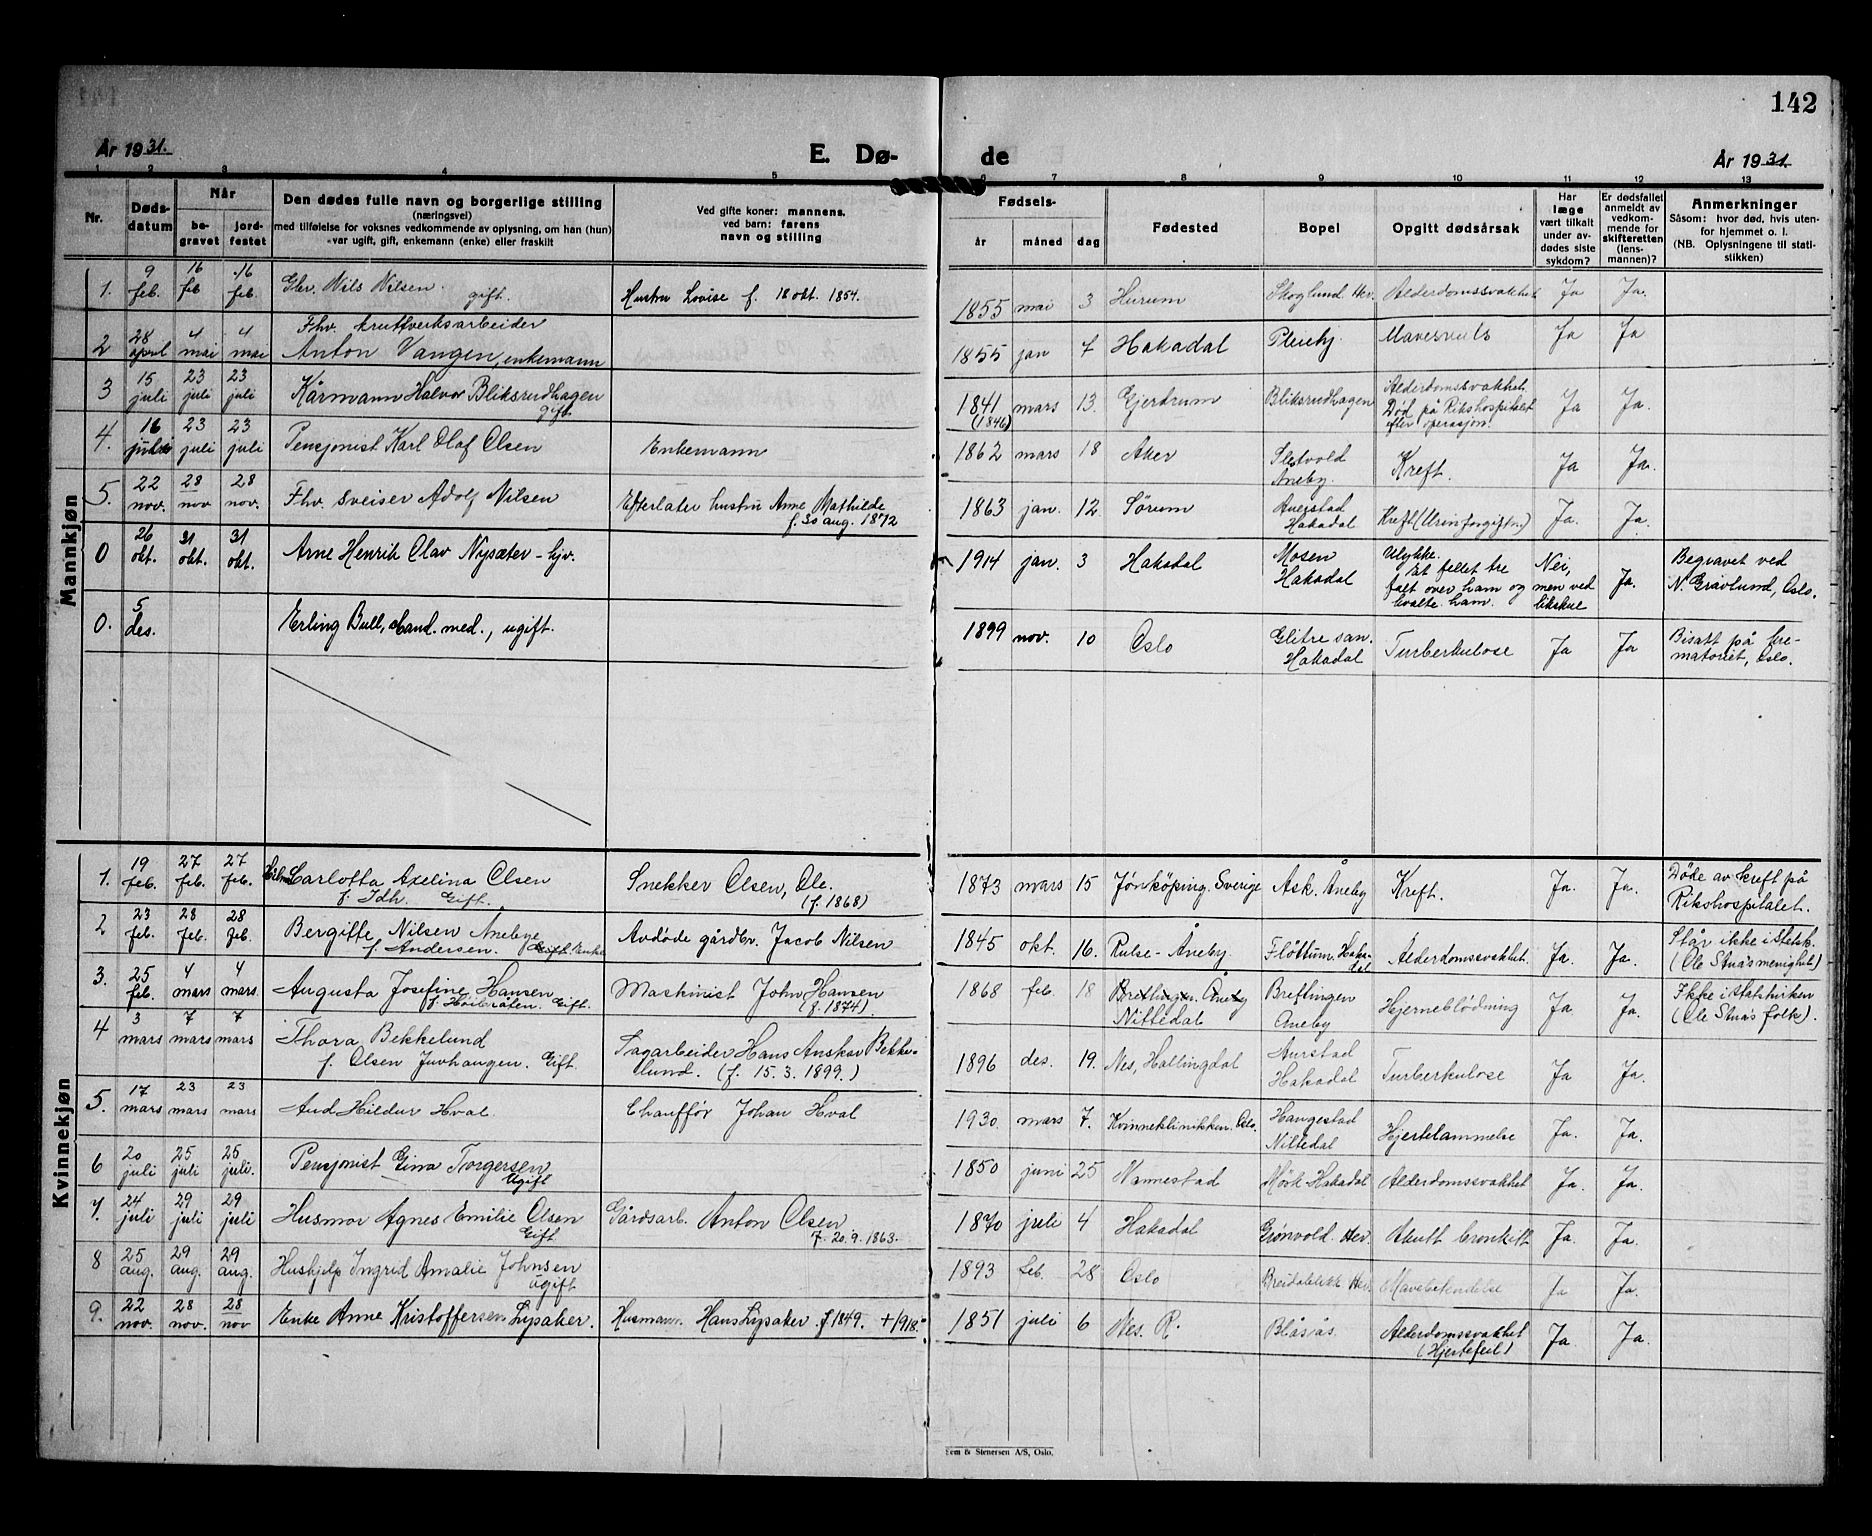 142
År 1931.
E. Dø-
de
År 1931.
1 2 3 4 5 6 7 8 9 10 11 12 13
Nr.
Døds-
datum
Når
be-
gravet
jord-
festet
Den dødes fulle navn og borgerlige stilling
(næringsvei)
med tilføielse for voksnes vedkommende av oplysning, om han (hun)
var ugift, gift, enkemann (enke) eller fraskilt
Ved gifte koner: mannens,
ved barn: farens
navn og stilling
Fødsels-
år
måned
dag
Fødested
Bopel
Opgitt dødsårsak
Har
læge
vært tilkalt
under av-
dødes siste
sykdom?
Er dødsfallet
anmeldt av
vedkom-
mende for
skifteretten
(lens-
mannen)?
Anmerkninger
Såsom: hvor død, hvis uten-
for hjemmet o. l.
(NB. Oplysningene til stati-
stikken)
Mannkjøn
1. 9 feb. 16 feb 16 feb. Gbr. Nils Nilsen. gift. Hustru Lovise f. 18 okt. 1854. 1855 mai 3 Hurum Skoglund. Hev. Alderdomssvakhet Ja Ja.
2 28 april 4 mai 4 mai Fhv. kruttverksarbeider
Anton Vangen, enkemann 1855 jan 7 Hakadal Pleiehj. Mavesvuls Ja Ja
3 15 juli 23 juli 23 juli Kårmann Halvor Bliksrudhagen
gift 1841 (1846) mars 13. Gjerdrum Bliksrudhagen Alderdomssvakhet.
Død på Rikshospitalet
efter operasjon. Ja Ja.
4. 16 juli 23 juli 23 juli Pensjonist Karl Olaf Olsen Enkemann 1862 mars 18 Aker Sletvold
Aneby. Kreft. Ja Ja.
5. 22 nov. 28 nov 28 nov. Fhv. sveiser Adolf Nilsen Efterlater hustru Anne Mathilde
f. 30 aug. 1872 1863 jan. 12. Sørum Auerstad
Hakadal Kreft (Urinforgiftn) Ja. Ja.
0 26 okt. 31 okt. 31 okt. Arne Henrik Olav Nysæter - hjv. 1914 jan. 3 Hakadal Mosen
Hakadal Ulykke.
Et fellet tre
falt over ham og
kvalte ham. Nei,
men ved
likskue Ja. Begravet ved
N. Gravlund, Oslo.
0. 5 des. Erling Bull, cand. med., ugift. 1899 nov. 10 Oslo Glitre san.
Hakadal Turberkulose Ja Ja Bisatt på kre-
matoriet, Oslo.
Kvinnekjøn
1. 19 feb. 27 feb. 27 feb. Hilma Carlotta Axelina Olsen
f. Idh. Gift. Snekker Olsen, Ole.
(f. 1868) 1873 mars 15 Jönköping. Sverige Ask. Åneby Kreft. Ja. Ja. Døde av kreft på
Rikshospitalet.
2 23 feb. 28 feb. 28 feb. Bergitte Nilsen Anebye
f. Andersen. Enke Avdøde gårdbr. Jacob Nilsen 1845 okt. 16. Rulse - Åneby. Fløttum. Haka-
dal Alderdomssvakhet Ja. Ja. Står ikke i Statsk.
(Ole Stuäs menighet)
3. 25 feb. 4 mars 4 mars. Augusta Josefine Hansen
f. Høibråten. Gift. Maskinist John Hansen
(f. 1874). 1868 feb. 18 Brettingen. Åneby
Nittedal Brettingen
Aneby Hjerneblödning Ja Ja Ikke i Statskirken
(Ole Stuäs folk).
4 3 mars 7 mars 7 mars Thora Bekkelund
f. Olsen Juvhaugen. Gift. Sagarbeider Hans Anskar Bekke-
lund. (f. 15.3.1899.) 1896 des. 19. Nes, Hallingdal Aurstad
Hakadal Turberkulose Ja Ja.
5. 17 mars 23 mars 23 mars Aud Hildur Hval. Chauffør Johan Hval 1930 mars 7. Kvinneklinikken. Oslo. Haugestad
Nittedal Hjertelammelse Ja. Ja.
6 20 juli 25 juli 25 juli. Pensjonist Gina Torgersen
Ugift 1850 juni 25 Nannestad Mörk Hakadal Alderdomssvakhet Ja. Ja.
7. 24 juli 29 juli 29 juli Husmor Agnes Emilie Olsen
Gift Gårdsarb. Anton Olsen
f. 20.9.1863. 1870 juli 4 Hakadal Grønvold. Hev. Akutt bronkitt Ja. Ja.
8 25 aug. 29 aug. 29 aug. Hushjelp Ingrid Amalie Johnsen
ugift 1893 feb. 28 Oslo Hev. Mavebetendelse Ja Ja.
9. 22 nov. 28 nov. 28 nov Enke Anne Kristoffersen Lysaker. Husmann. Hans Lysaker f 1849. +1918. 1851 juli 6 Nes. R. Blåsås. Alderdomssvakhet
(Hjertefeil) Ja. Ja.
Sem & Stenersen A/S, Oslo.